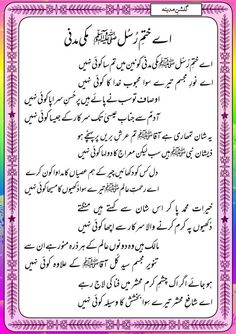 گلشن مدینہ
اے ختمِ رُسُل ﷺ مکی مدنی
اے ختمِ رُسُل ﷺ مکی مدنی کونین میں تم سا کوئی نہیں
اے نورِ مجسم تیرے سوا محبوب خدا کا کوئی نہیں
اوصاف تو سب نے پائے ہیں پر حُسن سراپا کوئی نہیں
آدم سے جنابِ عیسیٰ تک سرکار کے جیسا کوئی نہیں
یہ شان تمہاری ہے آقا ﷺ تم عرش بریں پر پہنچے ہو
ذیشان نبی ﷺ ہیں سب لیکن معراج کا دولہا کوئی نہیں
دل کس کو دکھائیں چیر کے ہم عصیاں کا مداوا کون کرے
اے رحمتِ عالم ﷺ تیرے سوا دُکھیوں کا مسیحا کوئی نہیں
خیرات محمد پا کر اس شان سے کہتے ہیں منگتے
دُکھیوں پہ کرم کرنے والا سرکار سا اچھا کوئی نہیں
مالک ہیں وہ دونوں عالم کے ہر ذرہ منور ہے ان سے
تنویرِ مجسم سید کُل آقا ﷺ کے علاوہ کوئی نہیں
ہو جائے اگر اک چشمِ کرم محشر میں فنا کی لاج رہے
اے شافعِ محشر تیرے سوا بخشش کا وسیلہ کوئی نہیں